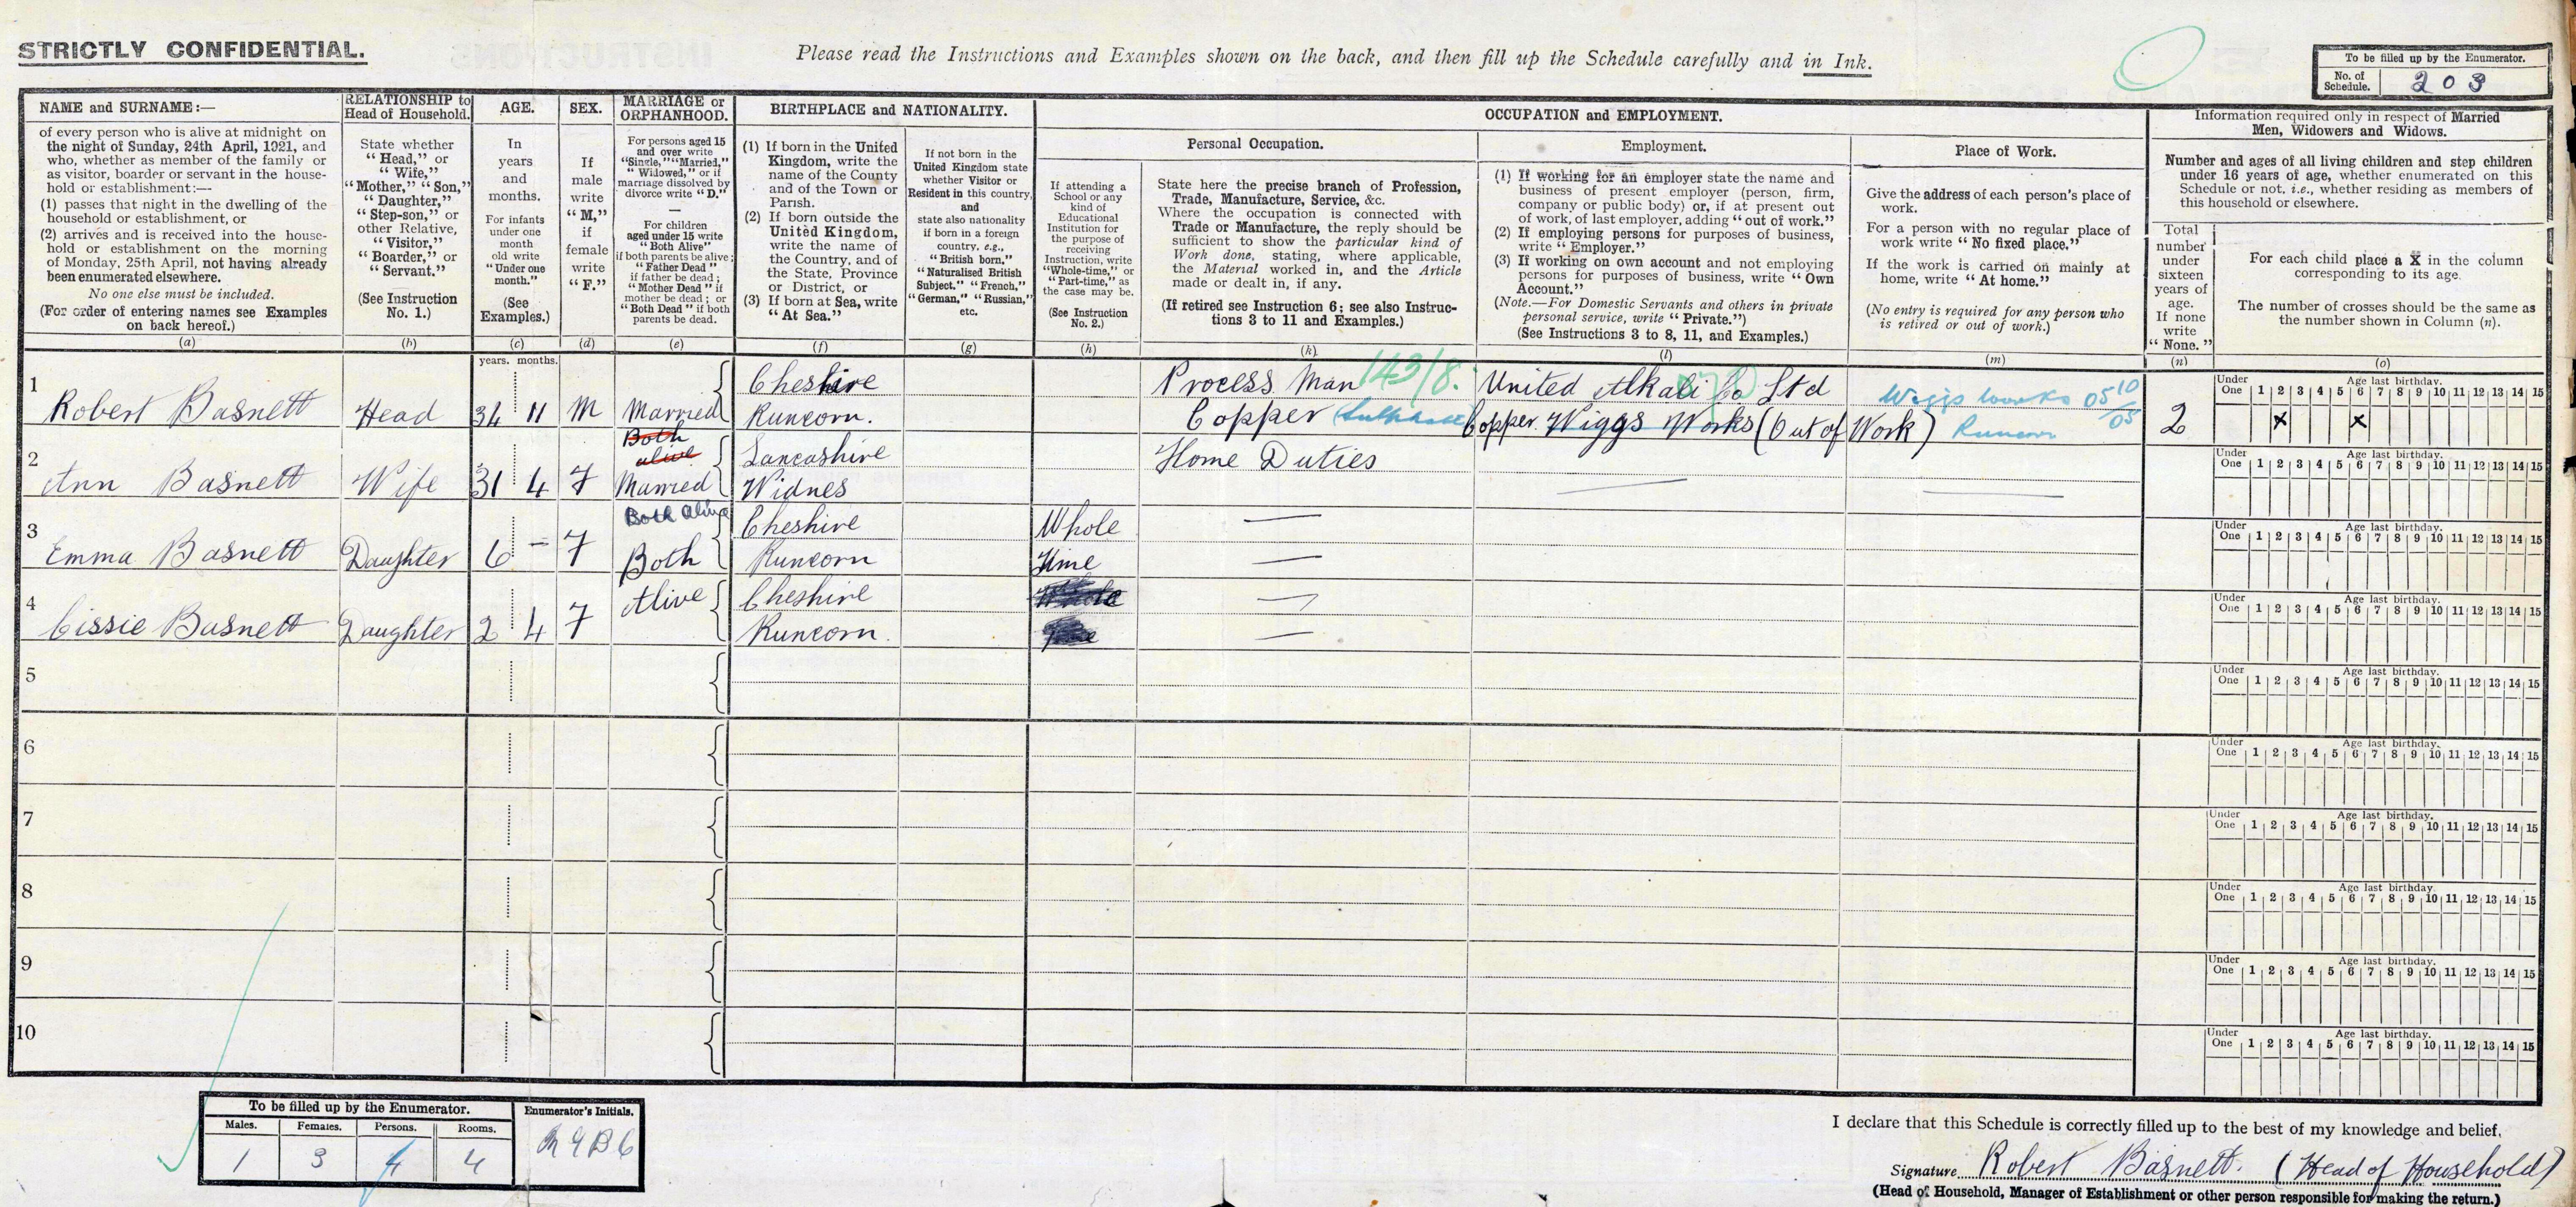 STRICTLY CONFIDENTIAL.
Please read the Instructions and Examples shown on the back, and then fill up the Schedule carefully and in Ink.
To be filled up by the Enumerator.
No. of Schedule. 203
NAME and SURNAME:—
of every person who is alive at midnight on
the night of Sunday, 24th April, 1921, and
who, whether as member of the family or
as visitor, boarder or servant in the house-
hold or establishment:—
(1) passes that night in the dwelling of the
household or establishment, or
(2) arrives and is received into the house-
hold or establishment on the morning
of Monday, 25th April, not having already
been enumerated elsewhere.
No one else must be included.
(For order of entering names see Examples
on back hereof.)
(a)
RELATIONSHIP to
Head of Household.
State whether
"Head," or
"Wife,"
"Mother," "Son,"
"Daughter,"
"Step-son," or
other Relative,
"Visitor,"
"Boarder," or
"Servant."
(See Instruction
No. 1.)
(b)
AGE.
In
years
and
months.
For infants
under one
month
old write
"Under one
month."
(See
Examples.)
(c)
SEX.
If
male
write
"M,"
if
female
write
"F."
(d)
MARRIAGE or
ORPHANHOOD.
For persons aged 15
and over write
"Single," "Married,"
"Widowed," or if
marriage dissolved by
divorce write "D."
—
For children
aged under 15 write
"Both Alive"
if both parents be alive;
"Father Dead"
if father be dead;
"Mother Dead" if
mother be dead; or
"Both Dead" if both
parents be dead.
(e)
BIRTHPLACE and NATIONALITY.
(1) If born in the United
Kingdom, write the
name of the County
and of the Town or
Parish.
(2) If born outside the
United Kingdom,
write the name of
the Country, and of
the State, Province
or District, or
(3) If born at Sea, write
"At Sea."
(f)
If not born in the
United Kingdom state
whether Visitor or
Resident in this country,
and
state also nationality
if born in a foreign
country, e.g.,
"British born,"
"Naturalised British
Subject," "French,"
"German," "Russian,"
etc.
(g)
OCCUPATION and EMPLOYMENT.
If attending a
School or any
kind of
Educational
Institution for
the purpose of
receiving
Instruction, write
"Whole-time," or
"Part-time," as
the case may be.
(See Instruction
No. 2.)
(h)
Personal Occupation.
State here the precise branch of Profession,
Trade, Manufacture, Service, &c.
Where the occupation is connected with
Trade or Manufacture, the reply should be
sufficient to show the particular kind of
Work done, stating, where applicable,
the Material worked in, and the Article
made or dealt in, if any.
(If retired see Instruction 6; see also Instruc-
tions 3 to 11 and Examples.)
(k)
Employment.
(1) If working for an employer state the name and
business of present employer (person, firm,
company or public body) or, if at present out
of work, of last employer, adding "out of work."
(2) If employing persons for purposes of business,
write "Employer."
(3) If working on own account and not employing
persons for purposes of business, write "Own
Account."
(Note.—For Domestic Servants and others in private
personal service, write "Private.")
(See Instructions 3 to 8, 11, and Examples.)
(l)
Place of Work.
Give the address of each person's place of
work.
For a person with no regular place of
work write "No fixed place."
If the work is carried on mainly at
home, write "At home."
(No entry is required for any person who
is retired or out of work.)
(m)
Information required only in respect of Married
Men, Widowers and Widows.
Number and ages of all living children and step children
under 16 years of age, whether enumerated on this
Schedule or not, i.e., whether residing as members of
this household or elsewhere.
Total
number
under
sixteen
years of
age.
If none
write
"None."
(n)
For each child place a X in the column
corresponding to its age.
The number of crosses should be the same as
the number shown in Column (n).
(o)
years. months.
1 Robert Basnett Head 34 11 M Married Cheshire Runcorn. Process Man 143/8. Copper Sulphate United Alkali Co Ltd Copper. Wiggs Works (Out of Work) Wiggs Works Runcorn 0510/05 2
Under One 1 2 3 4 5 6 7 8 9 10 11 12 13 14 15 Age last birthday.
X X
2 Ann Basnett Wife 31 4 F Both alive Married Lancashire Widnes Home Duties
Under One 1 2 3 4 5 6 7 8 9 10 11 12 13 14 15 Age last birthday.
3 Emma Basnett Daughter 6 – F Both Alive Both Cheshire Runcorn Whole Time
Under One 1 2 3 4 5 6 7 8 9 10 11 12 13 14 15 Age last birthday.
4 Cissie Basnett Daughter 2 4 F Alive Cheshire Runcorn. Whole Time
Under One 1 2 3 4 5 6 7 8 9 10 11 12 13 14 15 Age last birthday.
5
Under One 1 2 3 4 5 6 7 8 9 10 11 12 13 14 15 Age last birthday.
6
Under One 1 2 3 4 5 6 7 8 9 10 11 12 13 14 15 Age last birthday.
7
Under One 1 2 3 4 5 6 7 8 9 10 11 12 13 14 15 Age last birthday.
8
Under One 1 2 3 4 5 6 7 8 9 10 11 12 13 14 15 Age last birthday.
9
Under One 1 2 3 4 5 6 7 8 9 10 11 12 13 14 15 Age last birthday.
10
Under One 1 2 3 4 5 6 7 8 9 10 11 12 13 14 15 Age last birthday.
To be filled up by the Enumerator.
Males. Females. Persons. Rooms.
1 3 4 4
Enumerator's Initials.
I declare that this Schedule is correctly filled up to the best of my knowledge and belief.
Signature Robert Basnett. (Head of Household)
(Head of Household, Manager of Establishment or other person responsible for making the return.)